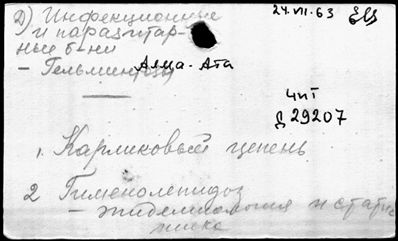 2) Инфекционные
и паразитар-
ные б-ни
24.VII.63
- Гельминтозы
Алма-Ата
чит
Д 29207
1. Карликовый цепень
2 Гименолепидоз
- эпидемиология и статис
тика